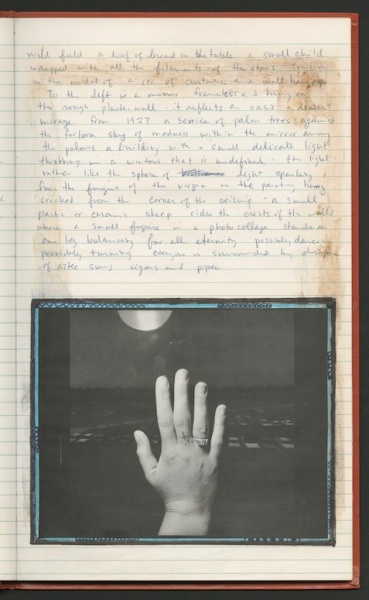 field a loaf of bread on the table a small child
wrapped with all the filaments of the stars
in the midst of a sea of curtains and wall
To the left is a mirror hung on
the rough plaster wall - it reflects a desert
mirage from 1927 a series of palm trees against
the forlorn sky of madness within the mirror among
the palms a building with a small delicate light
throbbing in a window that is undefined - the light
rather like the sphere of light
from the fingers of the virgin in the painting hung
crooked from the corner of the ceiling - a small
plastic or ceramic sheep rides the crest of the
where a small figure in a photo collage stands on
one leg balancing for all eternity possibly dancing
possibly turning everyone is surrounded by
of aztec suns, cigars and pipes